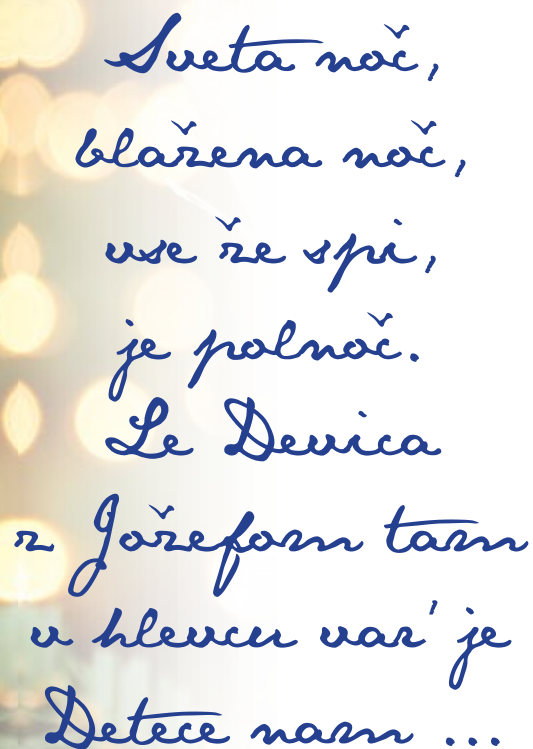 Sveta noč,
blažena noč,
vse že spi,
je polnoč.
Le Devica
z Jožefom tam
v hlevcu var' je
Detece nam ...